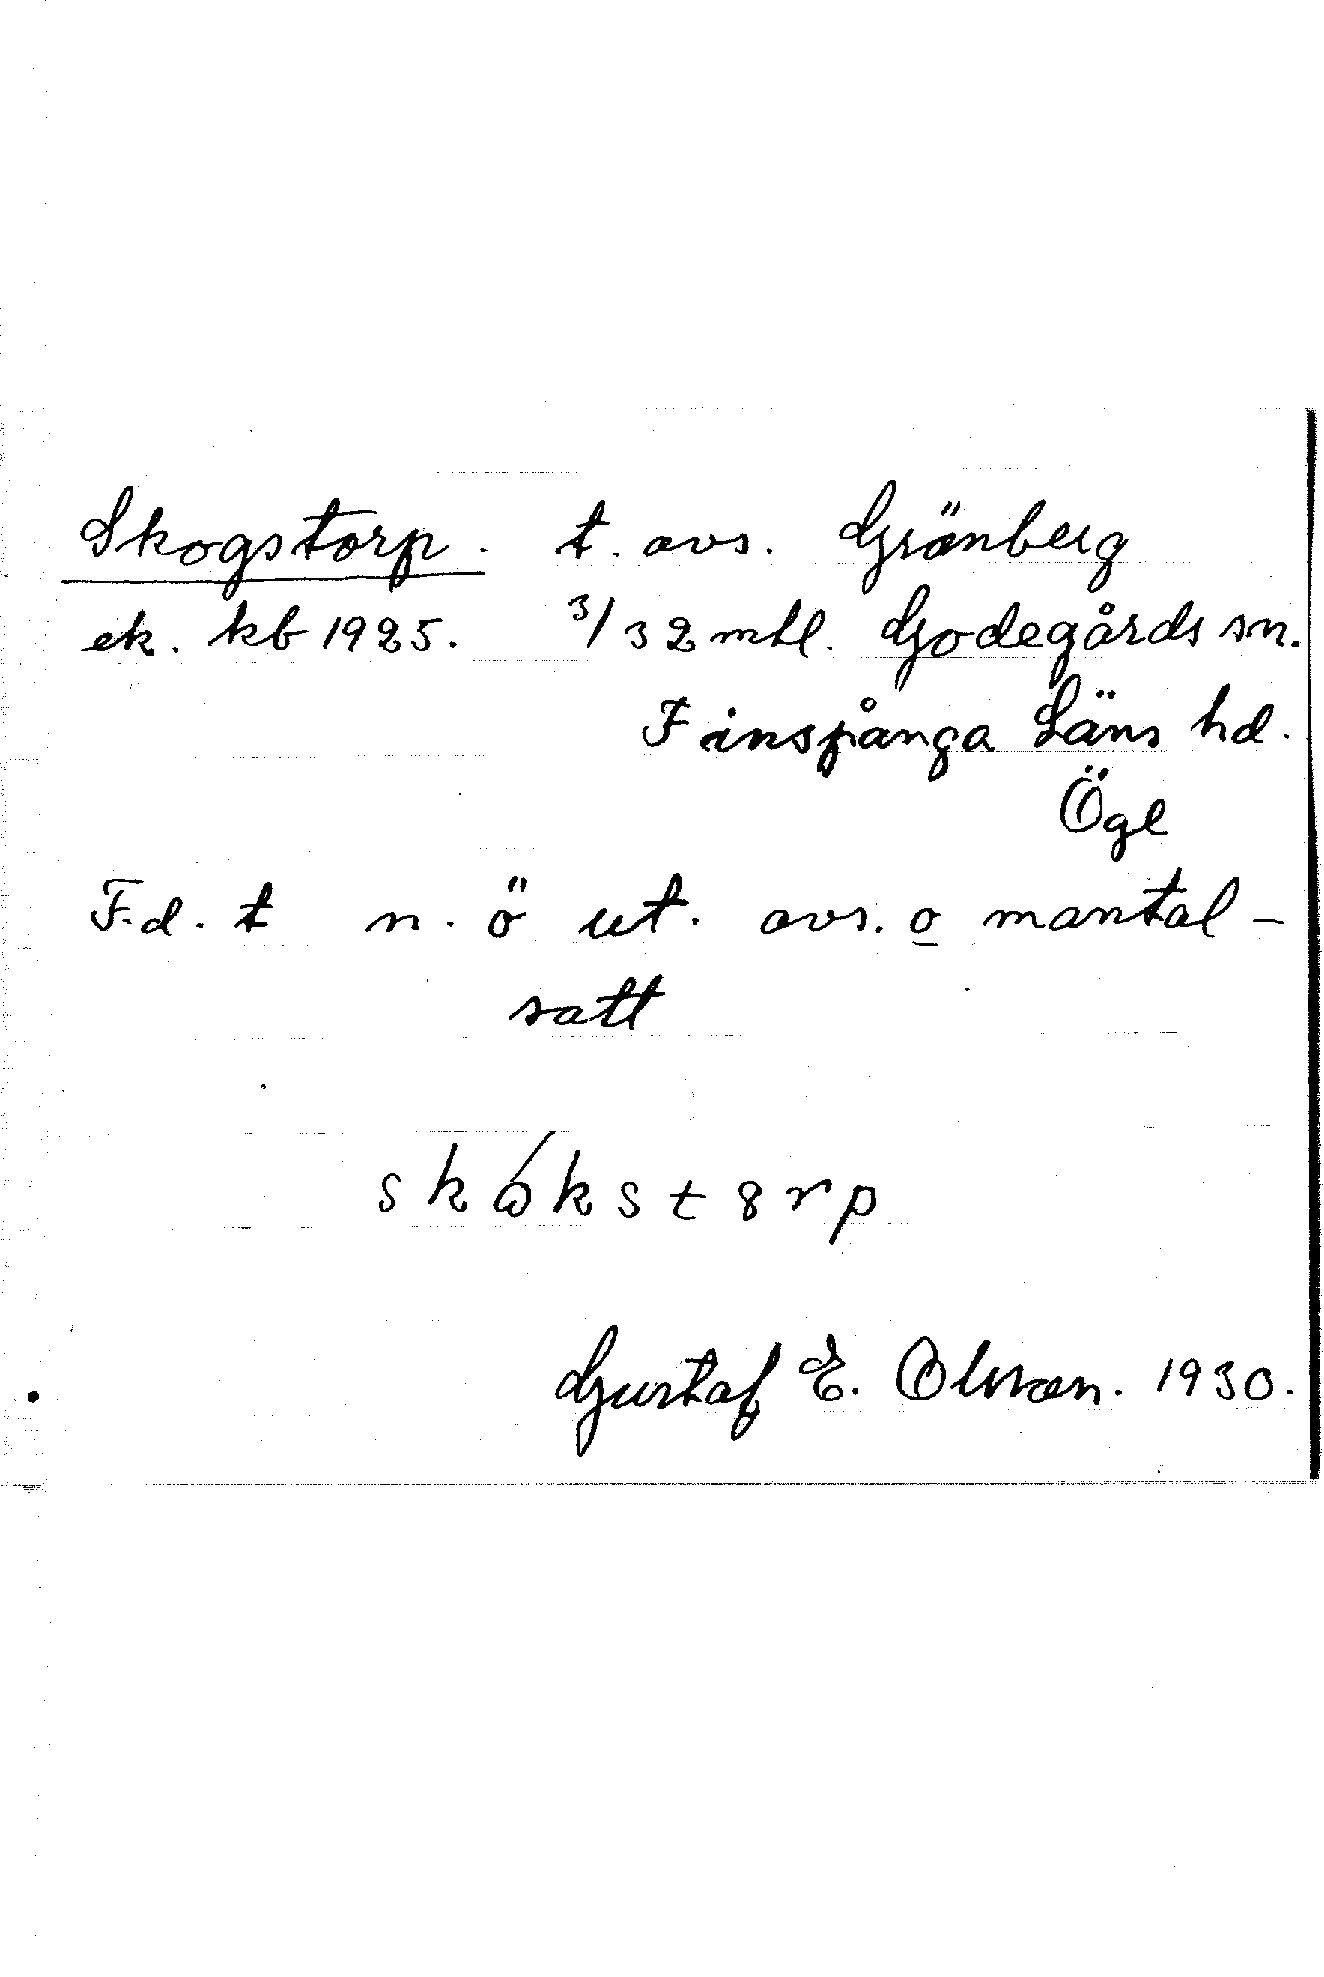 Skogstorp. t. avs. Grönberg
ek. kb 1925. 3/32 mtl. Godegårds sn.
Finspånga Läns hd.
Ögl
F.d. t n. ö ut. avs. o mantal-
satt
skókst8rp
Gustaf E. Olsson. 1930.